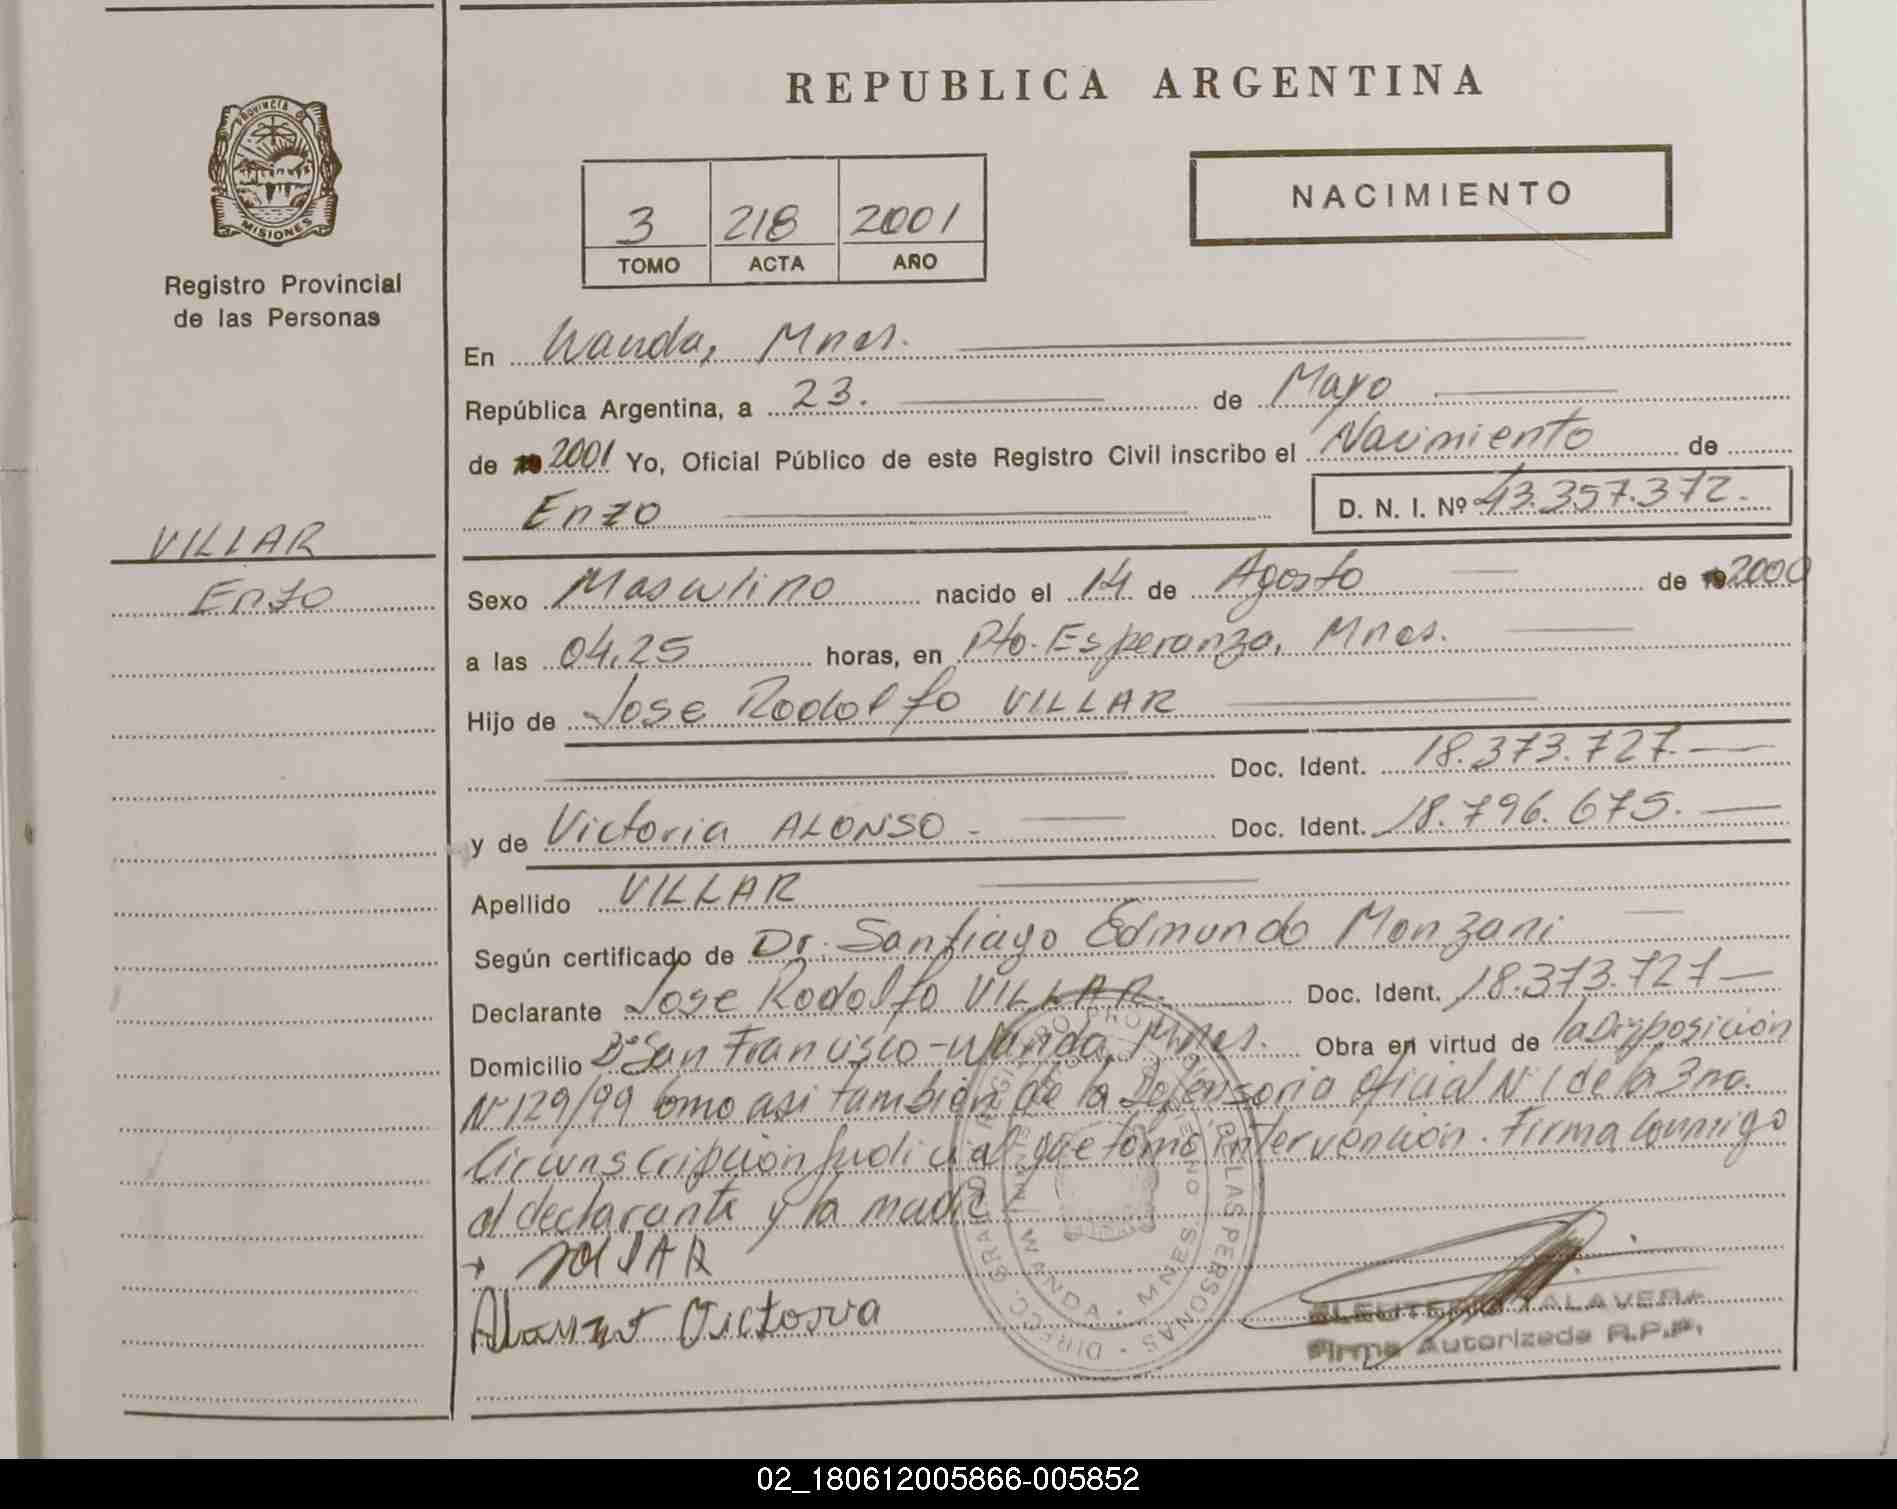 REPUBLICA ARGENTINA
PROVINCIA DE
MISIONES
Registro Provincial
de las Personas
3 218 2001
TOMO ACTA AÑO
NACIMIENTO
En Wanda, Mnes.
República Argentina, a 23. de Mayo
de 2001 Yo, Oficial Público de este Registro Civil inscribo el Nacimiento de
Enzo D. N. I. Nº 43.357.372.
VILLAR
Enzo
Sexo Masculino nacido el 14 de Agosto de 2000
a las 04,25 horas, en Pto. Esperanza, Mnes.
Hijo de Jose Rodolfo VILLAR
Doc. Ident. 18.373.727.
y de Victoria ALONSO Doc. Ident. 18.796.675.
Apellido VILLAR
Según certificado de Dr. Santiago Edmundo Monzani
Declarante Jose Rodolfo VILLAR. Doc. Ident. 18.373.727
Domicilio Bº San Francisco - Wanda, Mnes. Obra en virtud de la Disposición
Nº 129/99 como asi tambien de la Defensoria Oficial Nº 1 de la 3ra.
Circunscripción Judicial que tomo intervención. Firma conmigo
el declarante y la madre
Victoria
ELEUTERIO TALAVERA
Firma Autorizada R.P.P.
WANDA - MNES.
02_180612005866-005852